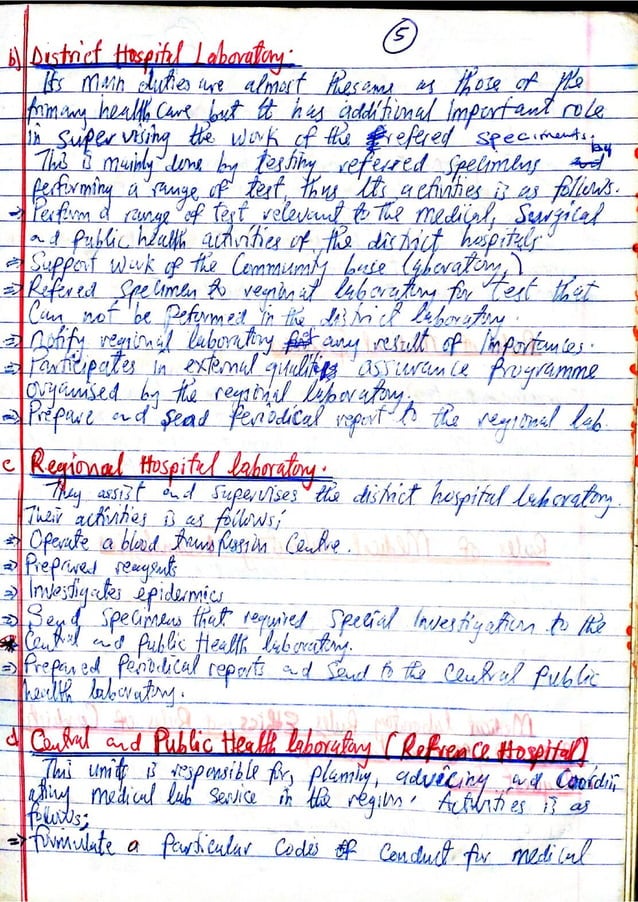 5
b) District Hospital Laboratory.
Its main duties are almost thesame as those of the
primary health care but it has additional important role
in supervising the work of the refered speciments.
This is mainly done by testing referred specimens by
performing a range of test thus its activities is as follows.
⇒ Perform a range of test relevant to the medical, Surgical
and public health activities of the district hospitals.
⇒ Support work of the Community base laboratory,)
⇒ Refered Specimen to regional laboratory for test that
Can not be peformed in the district laboratory.
⇒ Notify regional laboratory any result of importances.
⇒ Participates in external quality assurance Programme
organised by the regional laboratory.
⇒ Prepare and send Periodical report to the regional lab.
c Regional Hospital laboratory.
They assist and supervises the district hospital laboratory.
Their activities is as follows;
⇒ Operate a blood transfussion Centre.
⇒ Prepared reagents
⇒ Investigates epidermics
⇒ Send specimens that required special investigation to the
Central and Public Health laboratory.
⇒ Prepared Periodical reports and send to the Central public
health laboratory.
d Central and Public Health laboratory (Refrence Hospital)
This unit is responsible for, planning, advicing and Coordin
ating medical lab service in the region. Activities is as
follows;
⇒ Formulate a particular Codes of Conduct for medical